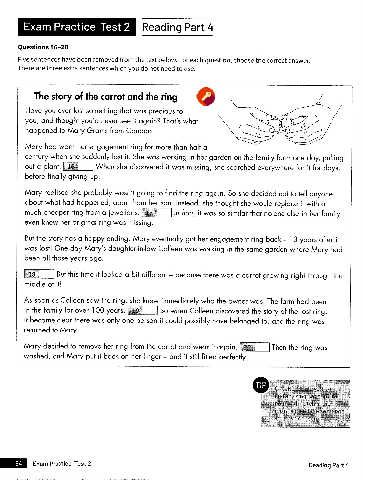 Exam Practice Test 2 Reading Part 4
Questions 16–20
Five sentences have been removed from the text below. For each question, choose the correct answer.
There are three extra sentences which you do not need to use.
The story of the carrot and the ring
Have you ever lost something that was precious to
you, and thought you'd never see it again? That's what
happened to Mary Grams from Canada.
Mary had worn her engagement ring for more than half a
century when she suddenly lost it. She was working in her garden on the family farm one day, pulling
out a plant. 16 When she discovered it was missing, she searched everywhere for it for days,
before finally giving up.
Mary realised she probably wasn't going to find the ring again. So she decided not to tell anyone
about what had happened, apart from her son. Instead, she thought she would replace it with a
much cheaper ring from a jeweller's. 17 In fact, it was so similar that no one else in her family
even knew her original ring was missing.
But the story has a happy ending. Mary eventually got her engagement ring back – 13 years after it
was lost! One day Mary's daughter-in-law Colleen was working in the same garden where Mary had
been all those years ago.
18 But this time it looked a bit different – because there was a carrot growing right through the
middle of it!
As soon as Colleen saw the ring, she knew immediately who the owner was. The farm had been
in the family for over 100 years. 19 So when Colleen discovered the story of the lost ring,
it became clear there was only one person it could possibly have belonged to, and the ring was
returned to Mary.
Mary decided to remove her ring from the carrot and wear it again. 20 Then the ring was
washed, and Mary put it back on her finger – and it still fitted perfectly.
TIP
84 Exam Practice Test 2
Reading Part 4